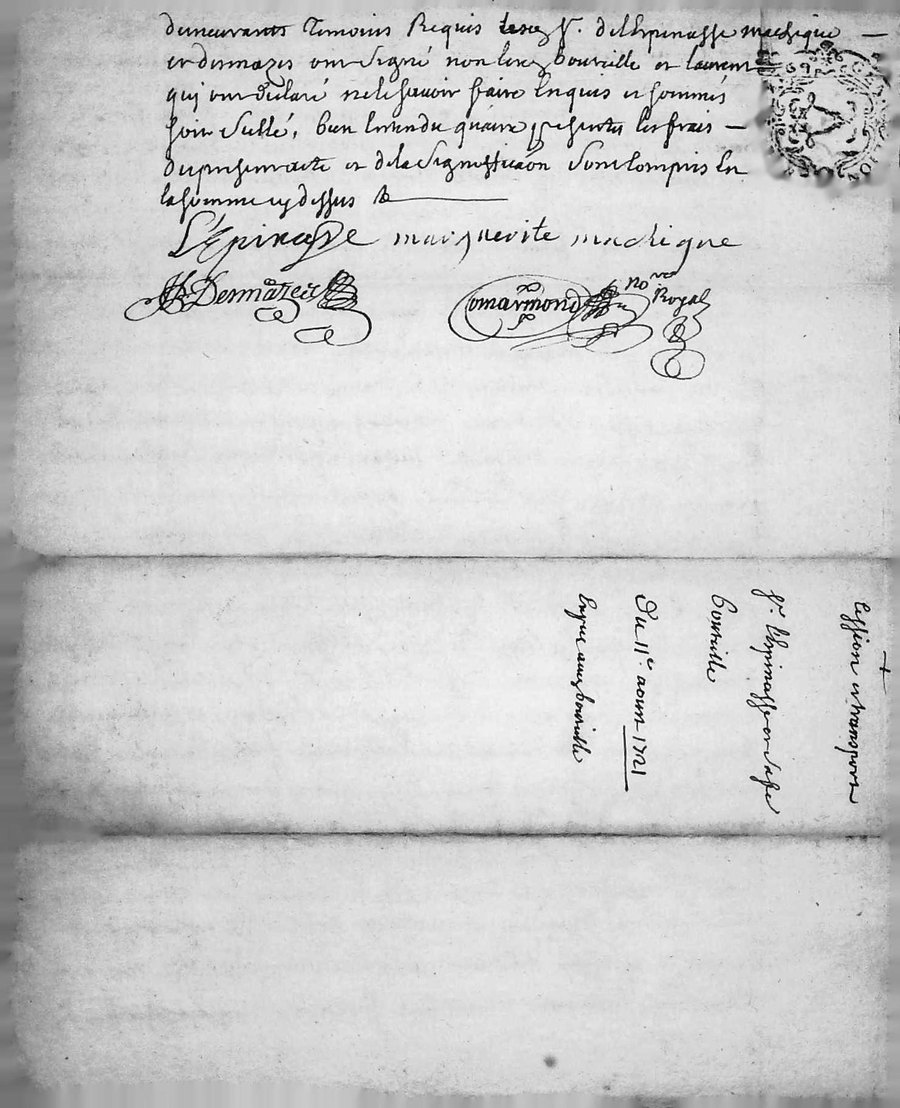 demeurants Temoins Requis lesd. Sr. de l'Espinasse machique
et desmazes ont signé non led. bouville et laurent
qui ont declaré ne le scavoir faire Enquis et sommés
soit scellé, bien Entendu qu'aux presentes les frais
du present acte et de la signiffication sont compris En
la somme cy dessus &
L'Epinasse marguerite machique
Desmazes
Comarmond Nore Royal
Cession et transport
Sr. l'Espinasse et sa fe
bouville
Du 11e. aoust 1721